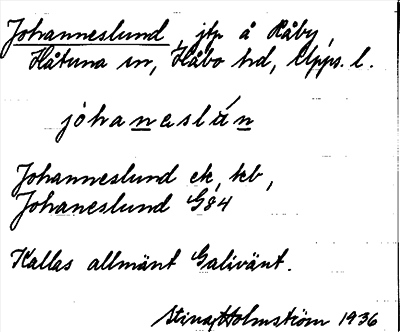 Johanneslund, jtp å Råby,
Håtuna sn, Håbo hd, Upps. l.
jòhaneslún
Johanneslund ek, kb,
Johaneslund G84
Kallas allmänt Galivänt.
Stina Holmström 1936